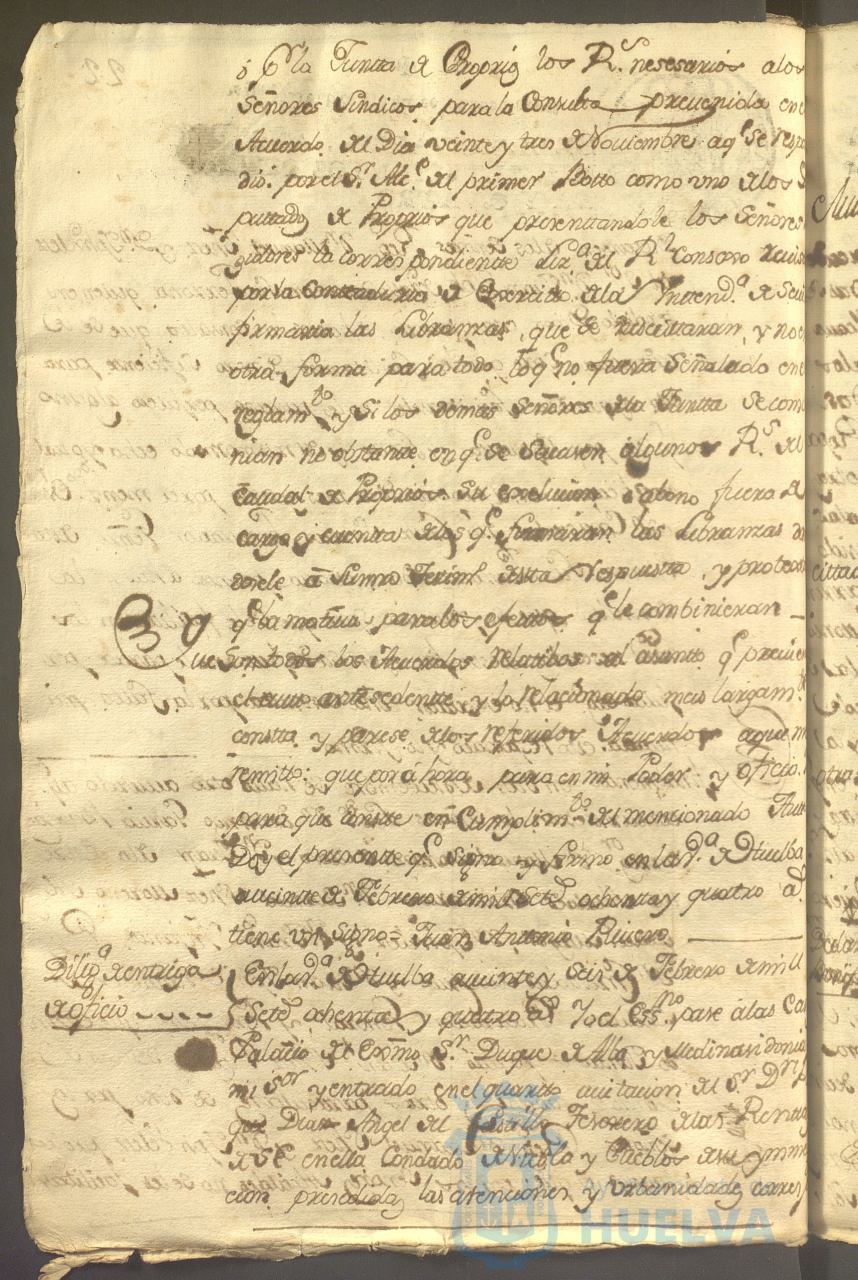 ó Pr la Juntta de Proprios los Rs. nesesarios alos
Señores Sindicos para la Consulta prevenida en el
Acuerdo del Dia veinte y tres de Noviembre aqe. se respo
dió por el Sr. Alce. del primer Botto como vno de los D
puttados de Proprios que presenttandole los Señores
gidores la correspondiente del Rl. Consexo
por la Contaduria de Exercito de la Yntenda. de Sevi
firmaria las Libranzas que se nescitaran, y no en
otra forma para todo lo qe. no fuera Señalado en el
reglamto. y si los demas Señores dela Juntta se com
nian no obstante en qe. se Sacasen algunos Rs. del
Caudal de Proprios su exclucion o abono fuera de
Cargo y cuentta delos qe. firmaran las Libranzas
dole a Sumrd. Tesim. destta respuestta, y protexta
qe. la motiva para los efectos qe. le combinieran
Que Son todos los Acuerdos relatibos al asunto qe. previe
el autto antesedente y lo relacionado mas largamte.
constta y parese delos referidos Acuerdos aque m
remitto: que por áhora para en mi Poder y Oficio.
para que constte en Cumplimto. del mencionado Aut
Doy el presente qe. signo y firmo en la Va. de Huelba
aveinte de Febrero de mil Sets. ochenta y quatro as.
tiene vn Signo = Juan Antonio Rivero
Diliga. de entrega
de oficio
En la Va. de Huelba aveinte y Seis de Febrero de mill
Sets. ochenta y quatro as. Yo el Essno. pase alas Cas
Palacio del Exmo. Sr. Duque de Alba y Medinasidonia
mi Sor. y entrado en el quarto avitacion del Sr. Dn.
que Dias Angel del Castillo Tesorero delas Rentas
de S.E. en ella Condado de Niebla y Pueblos de su
cion presedidas las atenciones y vrbanidades corres
AYUNTAMIENTO DE
HUELVA